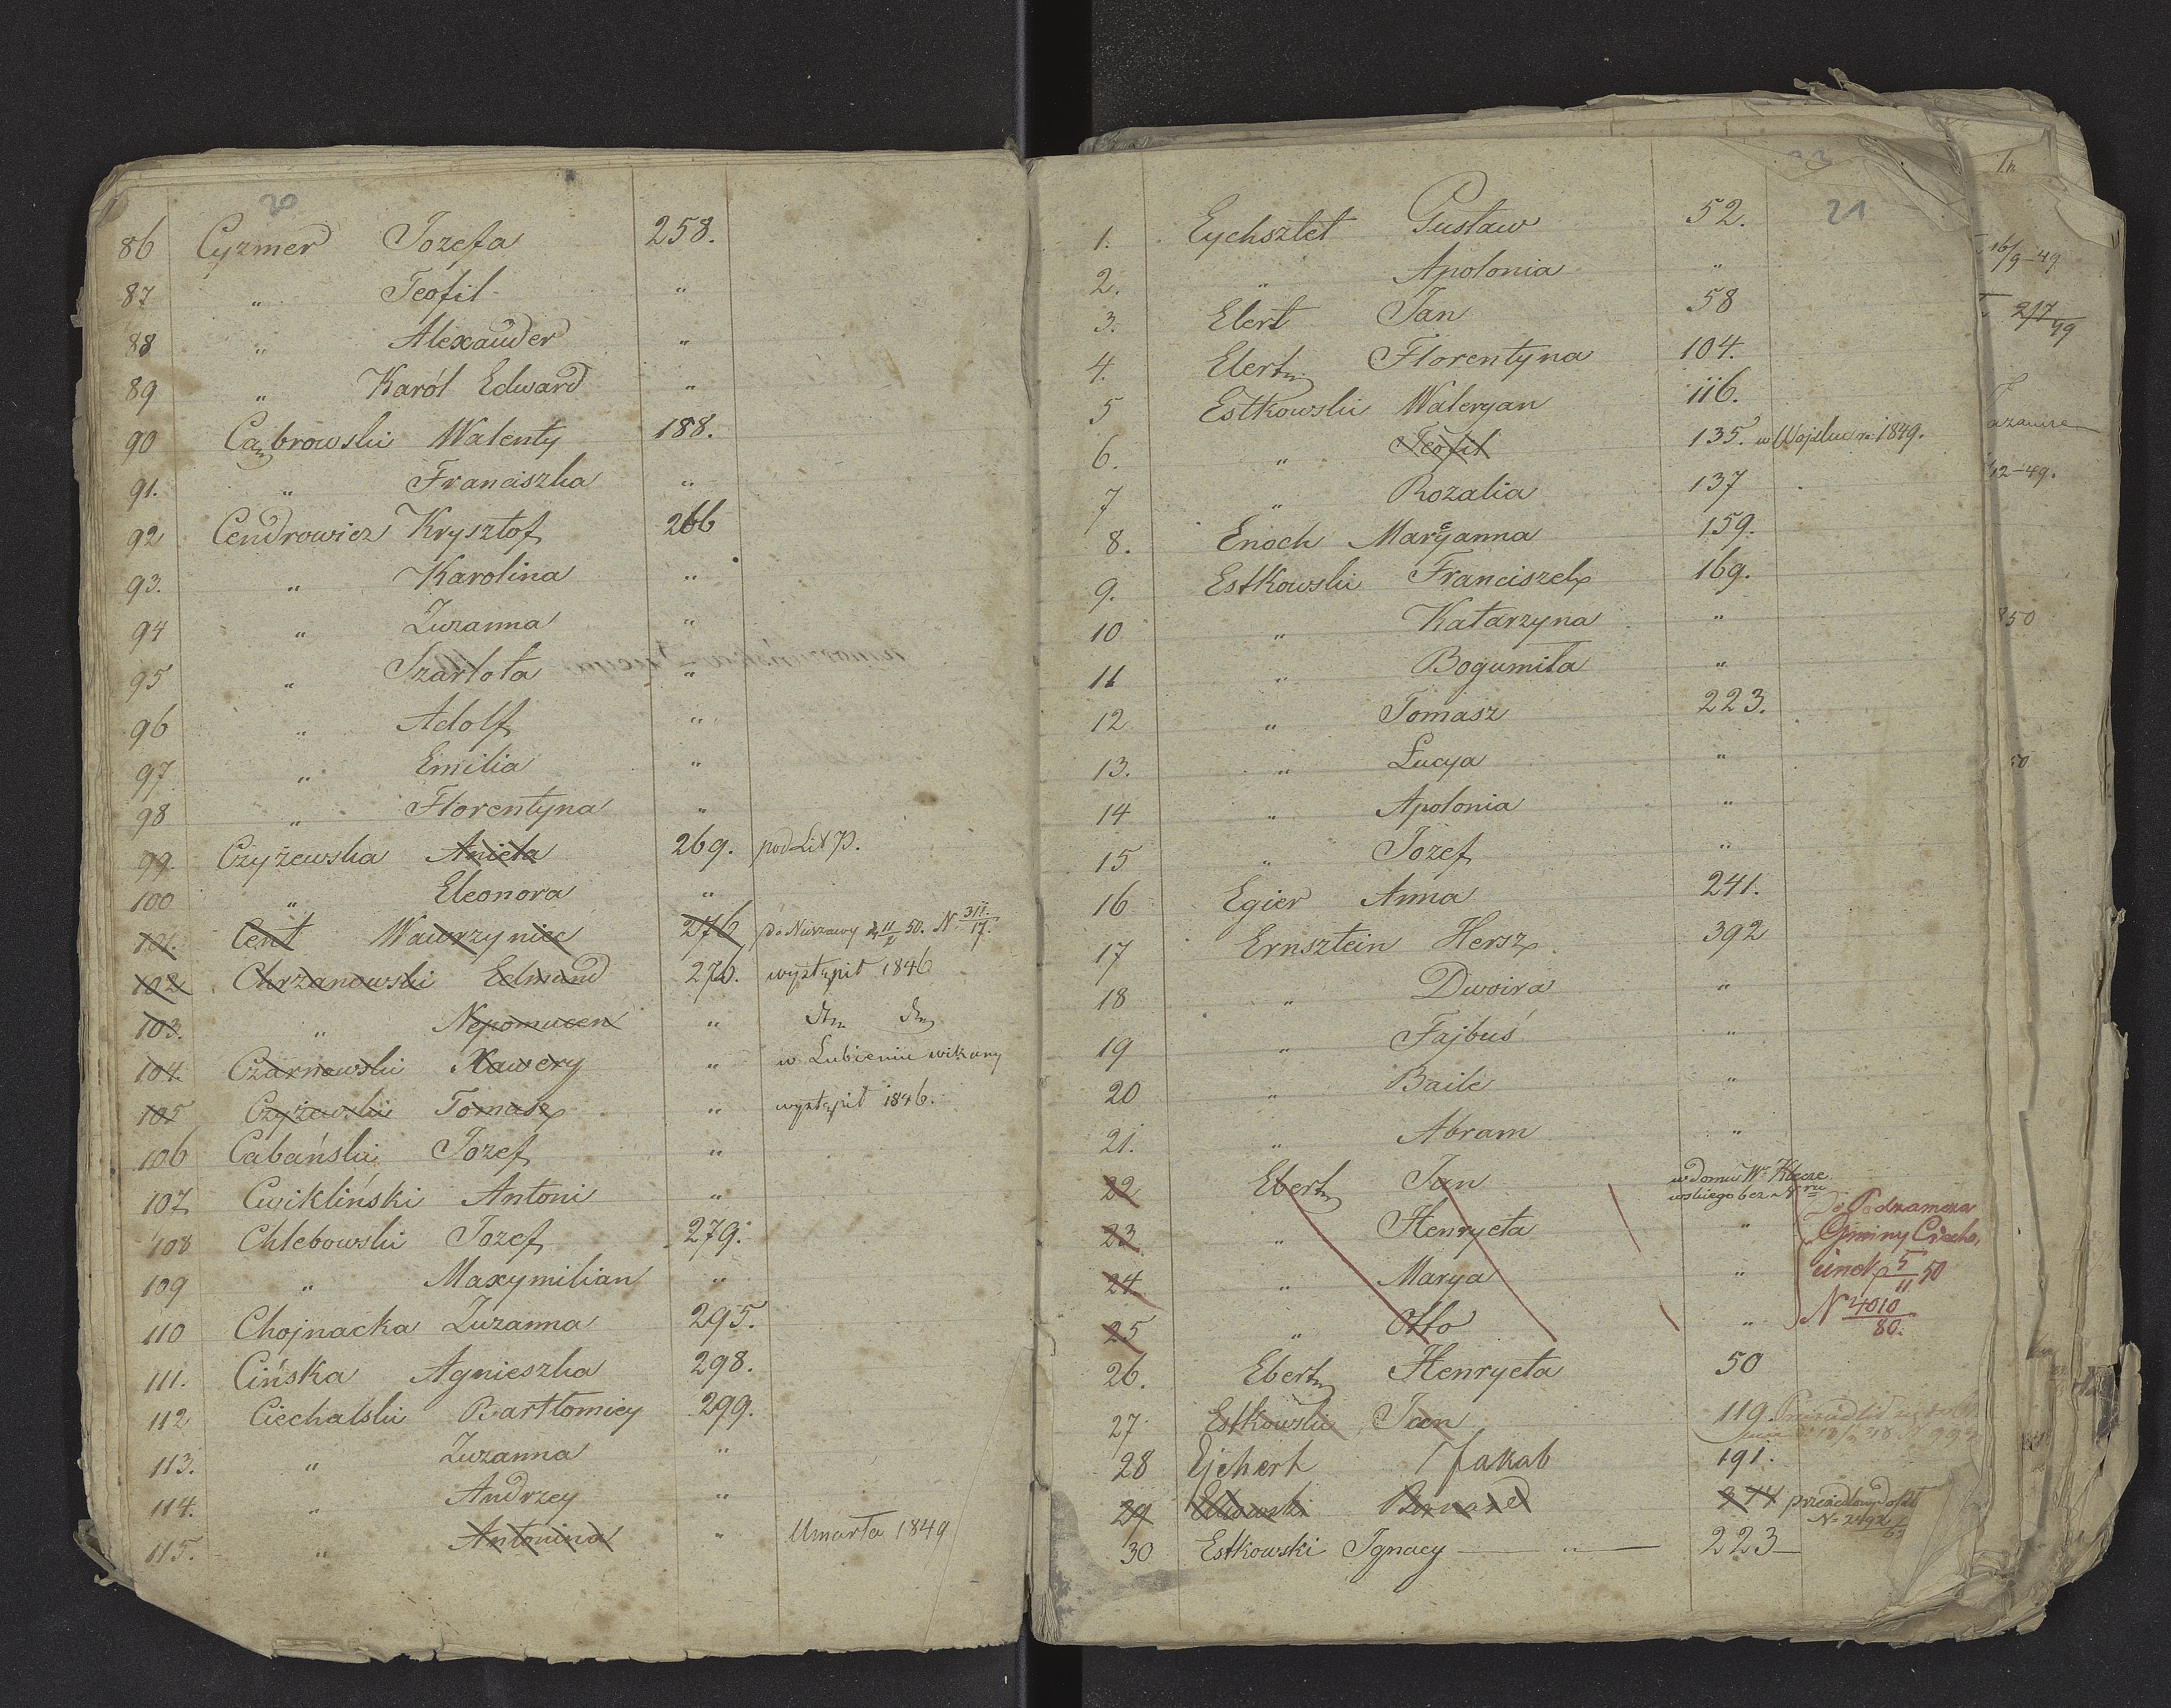 20
86 Cyzmer Jozefa 258.
87 " Teofil "
88 " Alexander "
89 " Karól Edward "
90 Cąbrowski Walenty 188.
91. " Franciszka "
92 Cendrowicz Krysztof 266
93. " Karolina "
94 " Zuzanna "
95 " Szarlota "
96 " Adolf "
97 " Emilia "
98 " Florentyna "
99. Czyżewska Aniela 269. pod Lit P.
100 " Eleonora "
101. Cent Wawrzyniec 276 do Nieszawy 50. N 311/17.
102 Chrzanowski Edmund 276. wystąpił 1846
103. " Nepomucen " dto dto
104. Czarnowski Xawery " w Lubieniu wikary
105 Czyżewski Tomasz " wystąpił 1846.
106 Cabański Jozef "
107. Cwikliński Antoni "
108 Chlebowski Jozef 279.
109 " Maxymilian "
110 Chojnacka Zuzanna 295.
111. Cińska Agnieszka 298.
112 Ciechalski Bartłomiey 299.
113. " Zuzanna "
114. " Andrzey "
115. " Antonina " Umarła 1849
21
1. Eychsztet Gustaw 52.
2. " Apolonia "
3. Elert Jan 58
4. Elert Florentyna 104.
5 Estkowski Waleryan 116.
6. " Teofil 135. w Wojsku r. 1849.
7 " Rozalia 137
8. Enoch Maryanna 159.
9. Estkowski Franciszek 169.
10 " Katarzyna "
11 " Bogumiła "
12 " Tomasz 223.
13. " Łucya "
14 " Apolonia "
15 " Jozef "
16 Egier Anna 241.
17 Ernsztein Hersz 392
18 " Dwoira "
19 " Fajbuś "
20 " Baile "
21. " Abram "
22 Ebert Jan w domu Wo
wskiego bez Nru
23 " Henryeta " Do Podzamcza
Gminy Ciecho
24. " Marya " cinek 5/11 50
25 " Otto " N 4010/80.
26. Ebert Henryeta 50
27 Estkowski Jan 119
28 Ejchert Jakob 191.
29 274
N 2492
30 Estkowski Ignacy — " — 223
16/9-49
2/7 49
12-49.
850
50